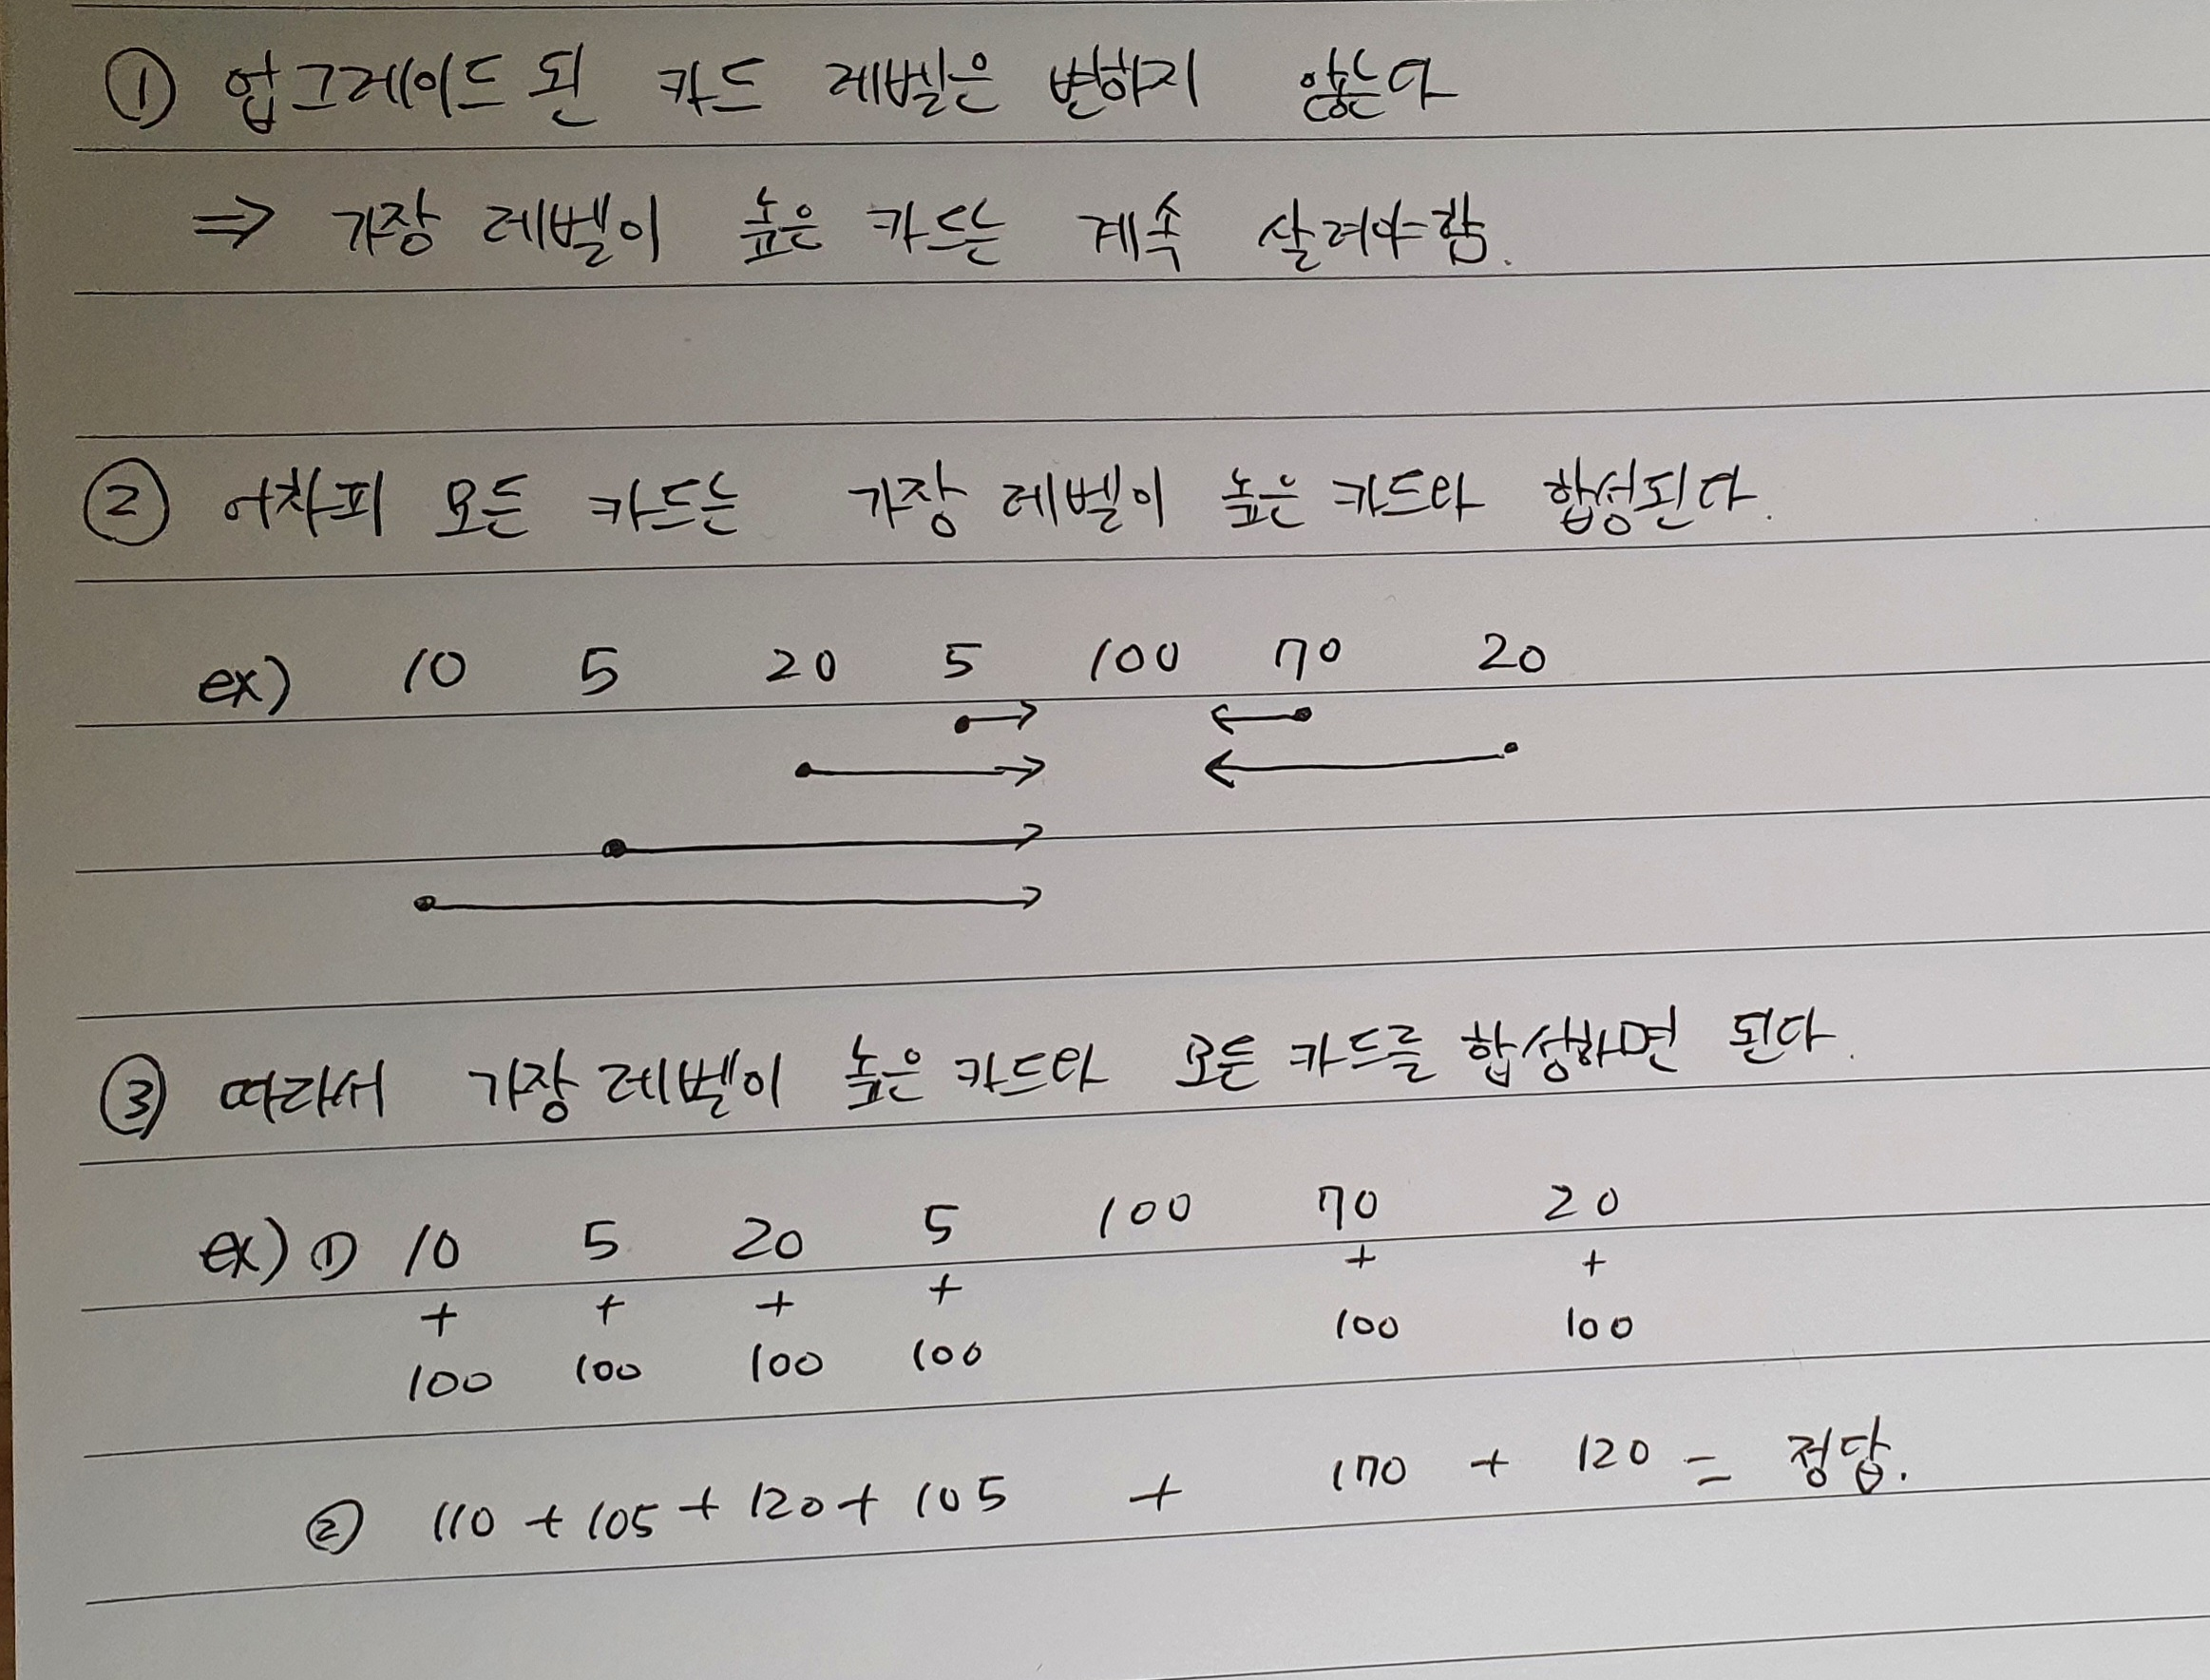 ① 업그레이드 된 카드 레벨은 변하지 않는다
⇒ 가장 레벨이 높은 카드는 계속 살려야함.
② 어차피 모든 카드는 가장 레벨이 높은 카드와 합성된다.
ex) 10 5 20 5 100 70 20
③ 따라서 가장 레벨이 높은 카드와 모든 카드를 합성하면 된다.
ex) ① 10 5 20 5 100 70 20
+ + + + + +
100 100 100 100 100 100
② 110 + 105 + 120 + 105 + 170 + 120 = 정답.